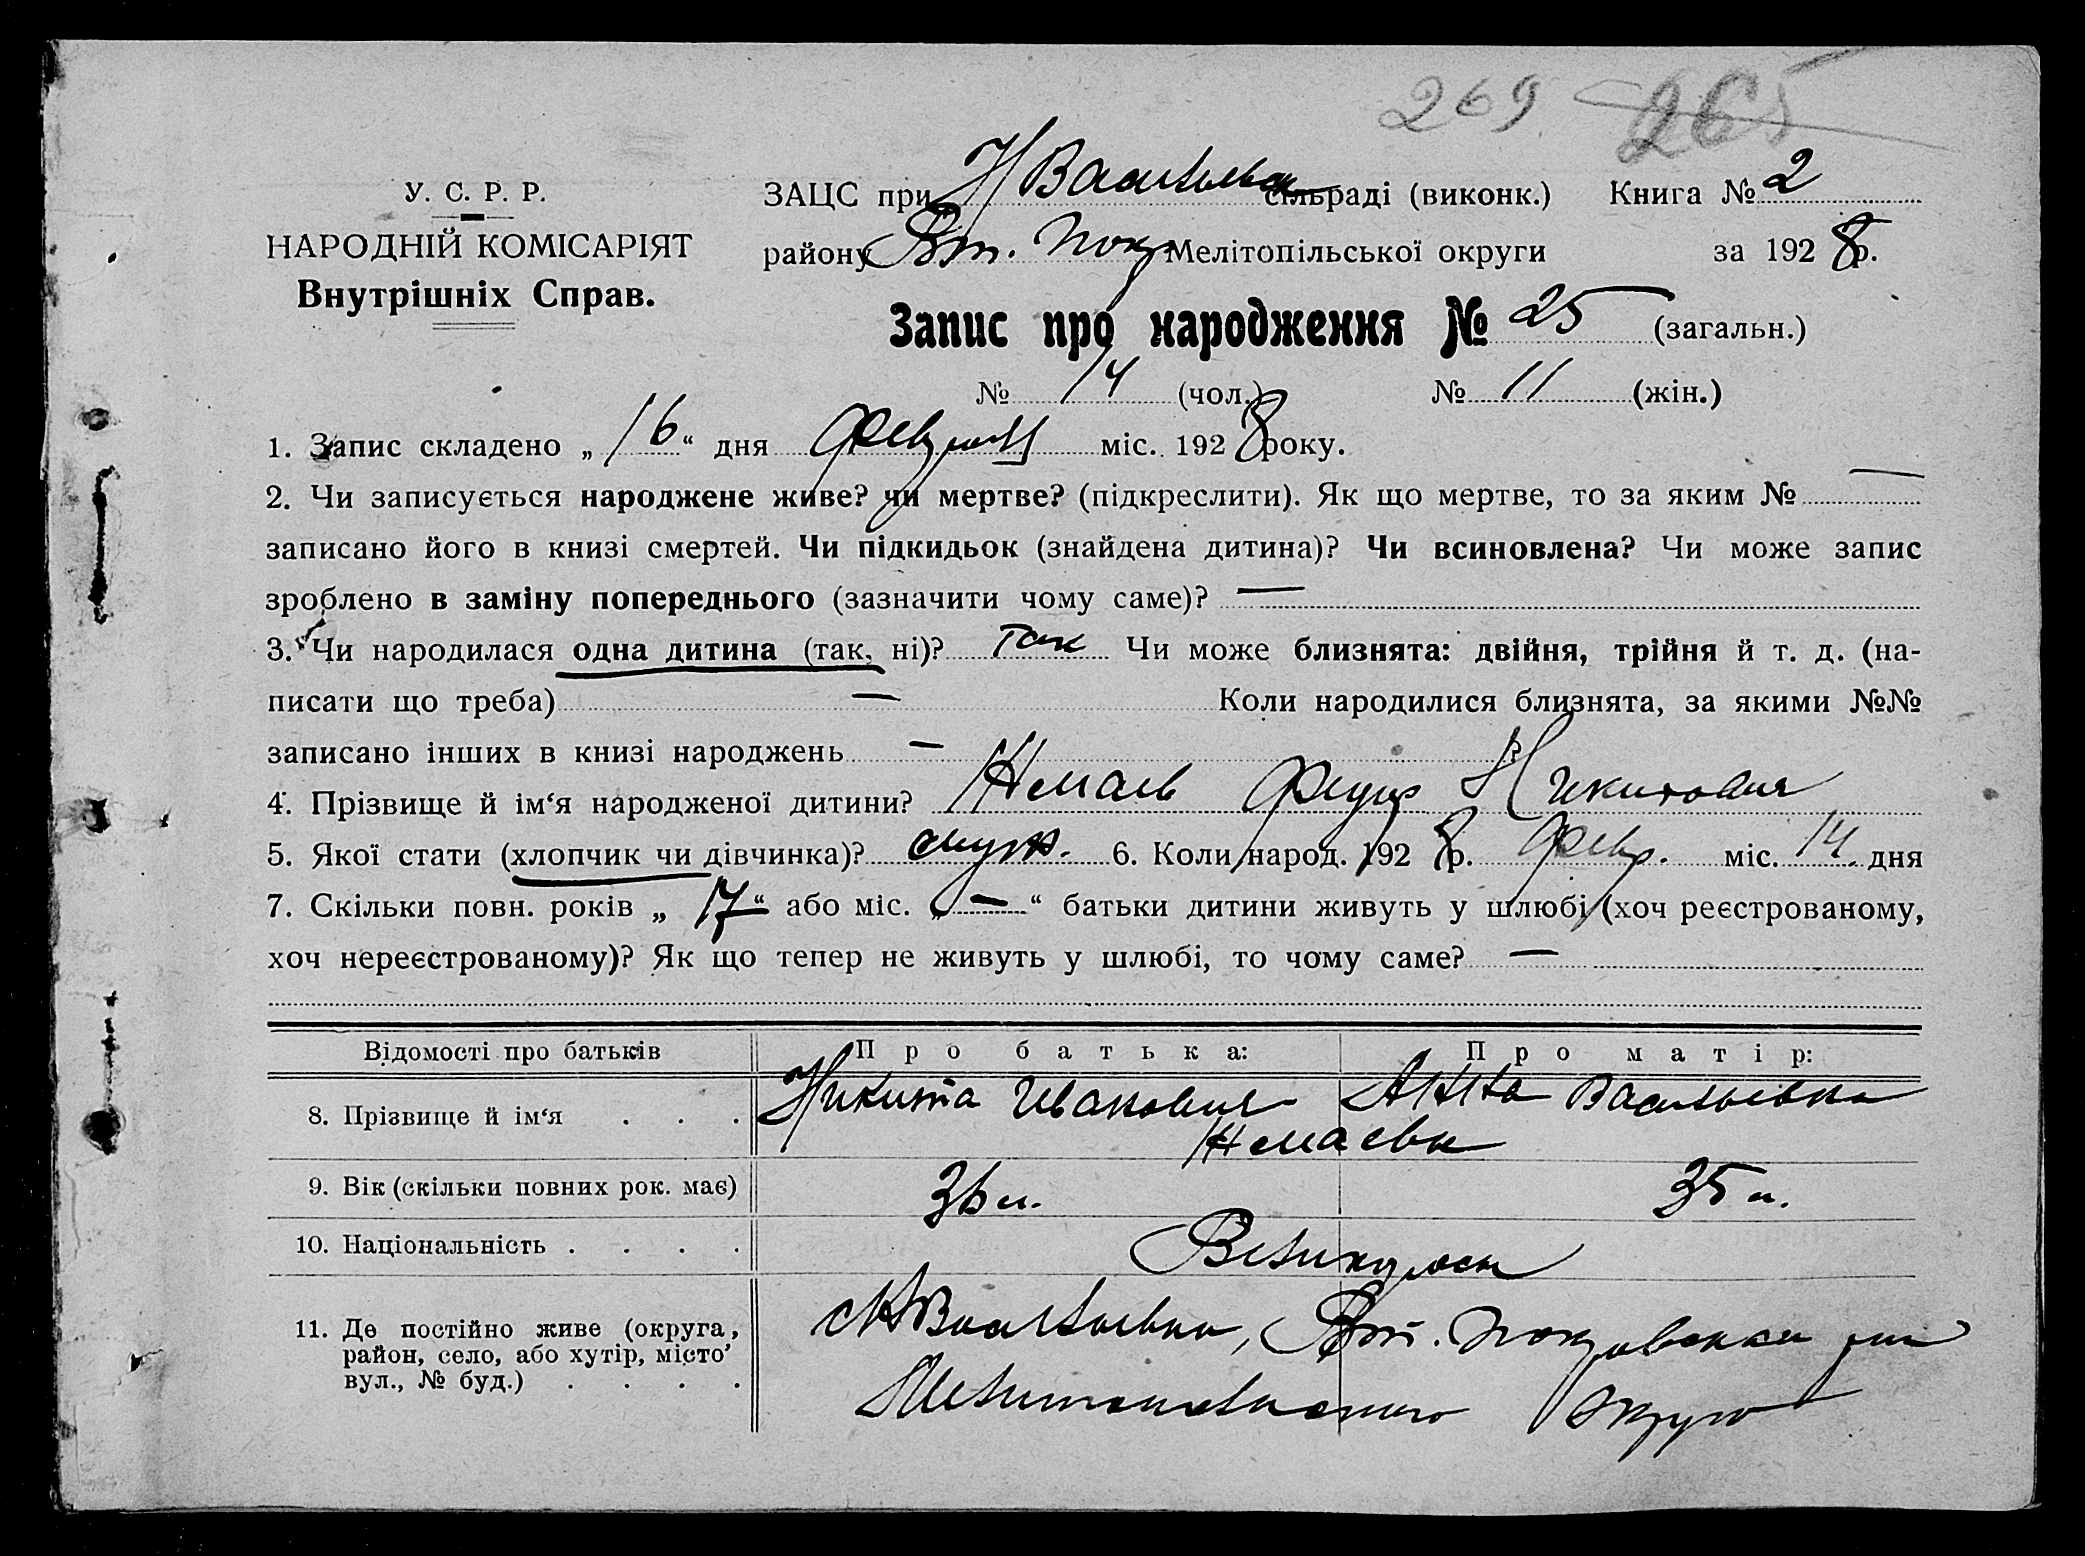 269 265
У. С. Р. Р.
НАРОДНІЙ КОМІСАРІЯТ
Внутрішніх Справ.
ЗАЦС при НВасильев сільраді (виконк.) Книга № 2
району Вт. Покр Мелітопільської округи за 1928 р.
Запис про народження № 25 (загальн.)
№ 14 (чол.) № 11 (жін.)
1. Запис складено „16“ дня февраля міс. 1928 року.
2. Чи записується народжене живе? чи мертве? (підкреслити). Як що мертве, то за яким № —
записано його в книзі смертей. Чи підкидьок (знайдена дитина)? Чи всиновлена? Чи може запис
зроблено в заміну попереднього (зазначити чому саме)? —
3. Чи народилася одна дитина (так, ні)? Так Чи може близнята: двійня, трійня й т. д. (на-
писати що треба) — Коли народилися близнята, за якими №№
записано інших в книзі народжень — ?
4. Прізвище й ім‘я народженої дитини? Федор Никитович
5. Якої стати (хлопчик чи дівчинка)? муж. 6. Коли народ. 1928 р. февр. міс. 14. дня
7. Скільки повн. років „17“ або міс. „—“ батьки дитини живуть у шлюбі (хоч реєстрованому,
хоч нереєстрованому)? Як що тепер не живуть у шлюбі, то чому саме? —
Відомості про батьків Про батька: Про матір:
8. Прізвище й ім‘я . . . Никита Иванович Анна Васильевна
9. Вік (скільки повних рок. має) 36 л. 35 л.
10. Національність . . . . Великоросы
11. Де постійно живе (округа,
район, село, або хутір, місто
вул., № буд.) . . . .
с НВасильевка, Вт. Покровский
Мелитопольского Округа